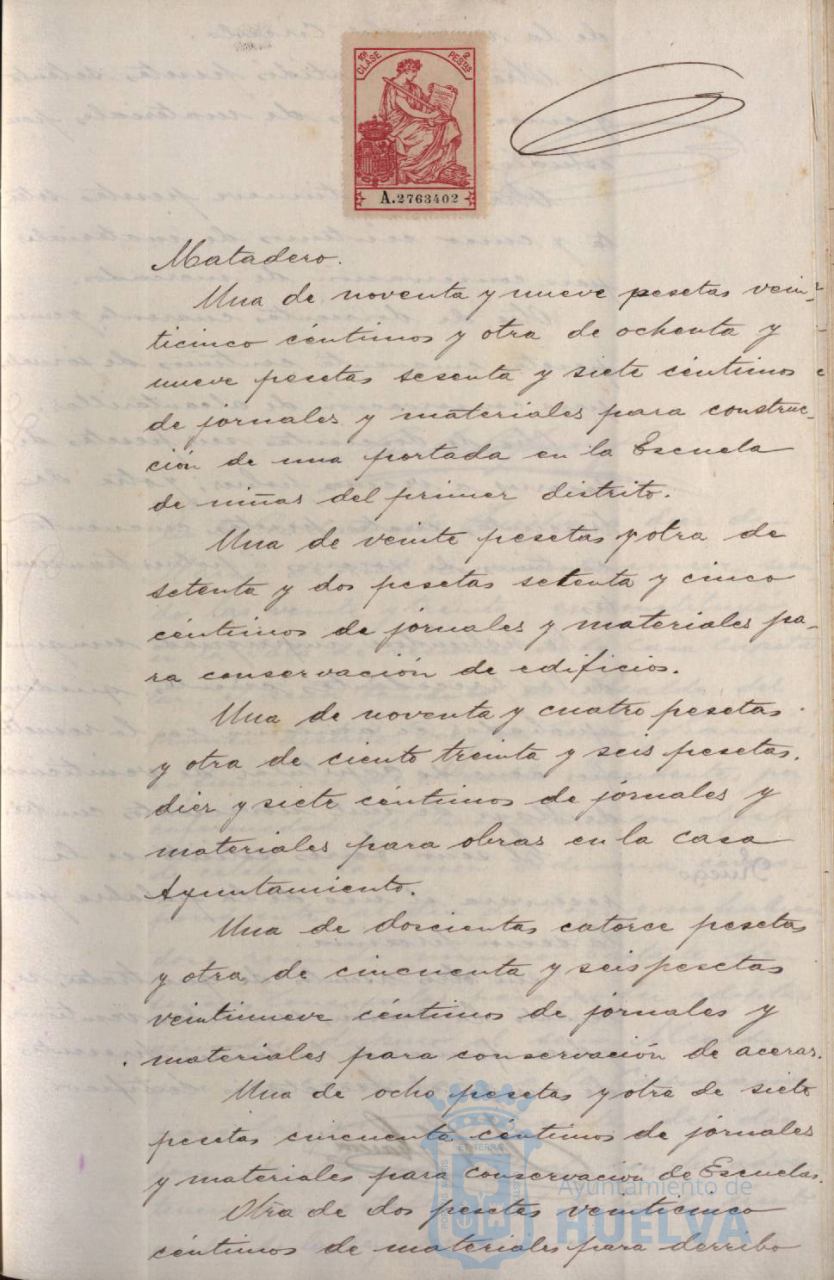 10ª CLASE
2 PESETAS
A.2763402
Matadero.
Una de noventa y nueve pesetas vein-
ticinco céntimos y otra de ochenta y
nueve pesetas sesenta y siete céntimos
de jornales y materiales para construc-
ción de una portada en la Escuela
de niñas del primer distrito.
Una de veinte pesetas y otra de
setenta y dos pesetas setenta y cinco
céntimos de jornales y materiales pa-
ra conservación de edificios.
Una de noventa y cuatro pesetas
y otra de ciento treinta y seis pesetas.
diez y siete céntimos de jornales y
materiales para obras en la casa
Ayuntamiento.
Una de doscientas catorce pesetas
y otra de cincuenta y seis pesetas
veintinueve céntimos de jornales y
materiales para conservación de aceras.
Una de ocho pesetas y otra de siete
pesetas cincuenta céntimos de jornales
y materiales para conservacion de Escuelas.
Otra de dos pesetas veinticinco
céntimos de materiales para derribo
Ayuntamiento de
HUELVA